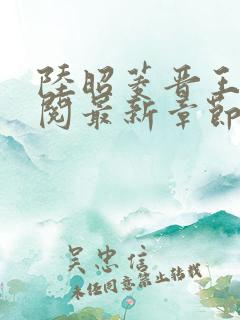 陸昭菱晋王
閱最新章節
吴忠信
未经同意禁止转载